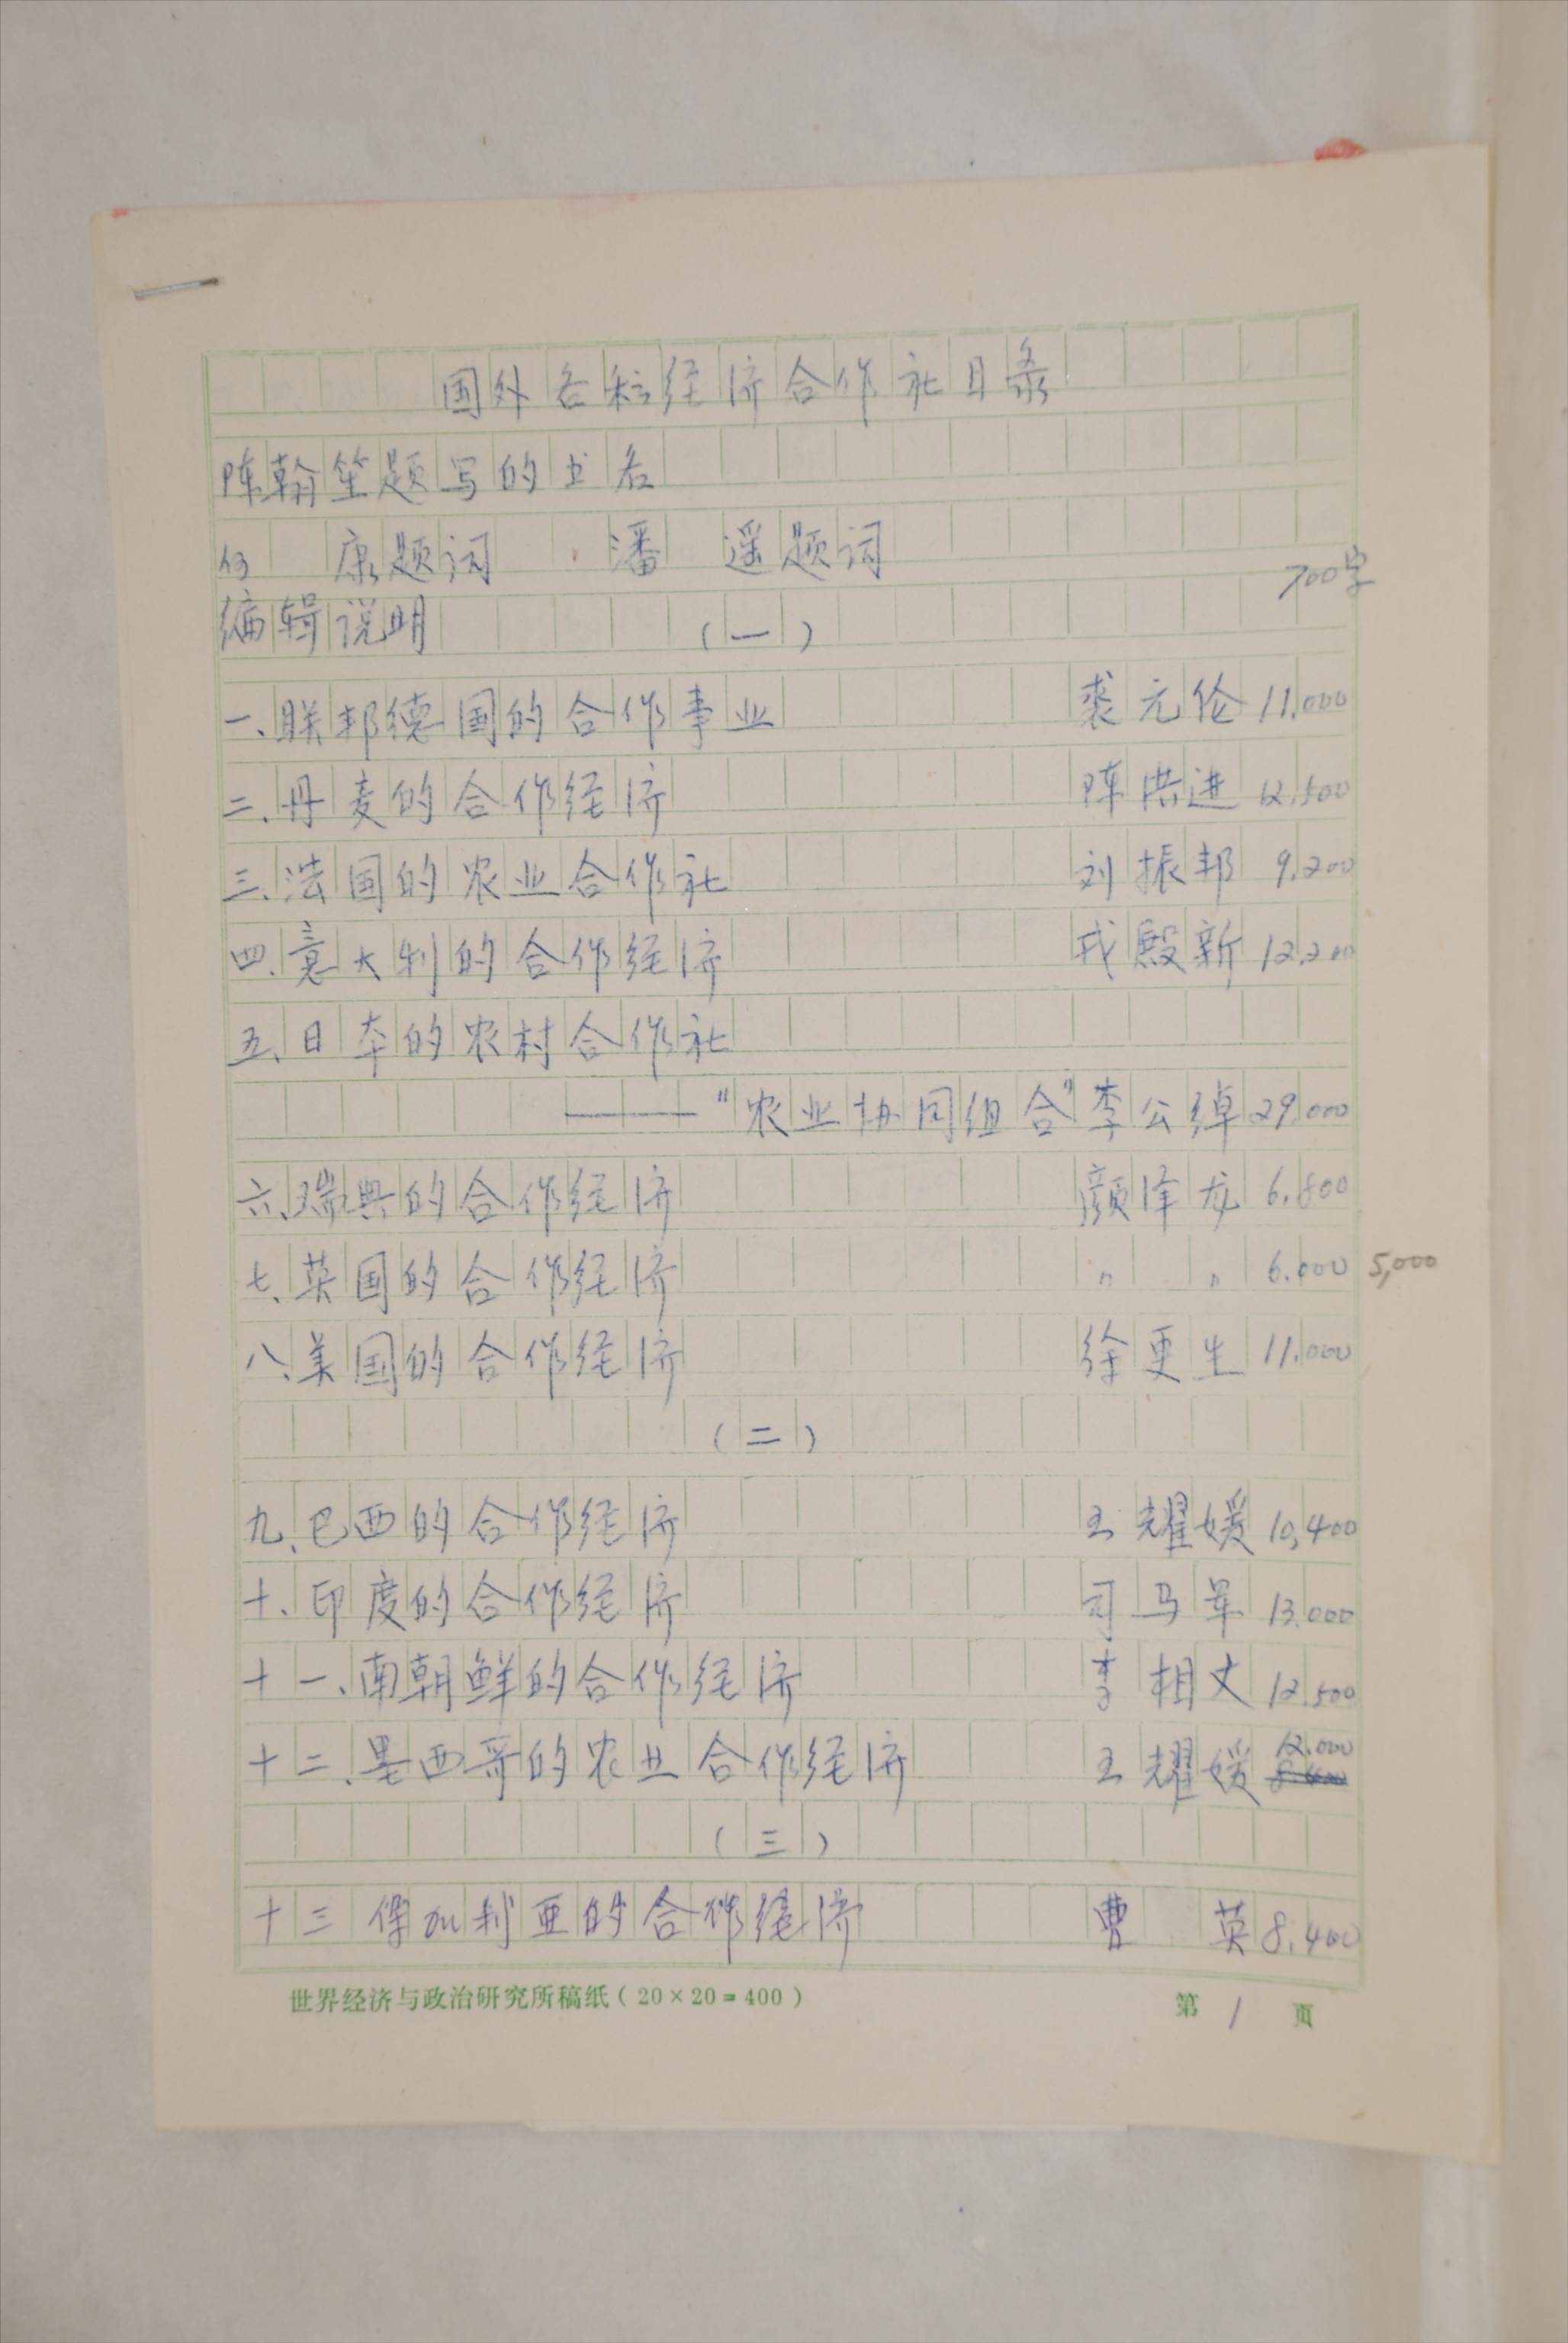 国外各种经济合作社目录
陈翰笙题写的书名
何 康题词 潘 遥题词
700字
编辑说明 (一)
一、联邦德国的合作事业 裘元伦 11.000
二、丹麦的合作经济 陈洪进 12.500
三、法国的农业合作社 刘振邦 9.200
四、意大利的合作经济 戎殿新 12.200
五、日本的农村合作社
——"农业协同组合" 李公绰 29.000
六、瑞典的合作经济 颜泽龙 6.800
七、英国的合作经济 〃 〃 6.000 5,000
八、美国的合作经济 徐更生 11.000
(二)
九、巴西的合作经济 王耀媛 10,400
十、印度的合作经济 司马军 13.000
十一、南朝鲜的合作经济 李相文 12.500
十二、墨西哥的农业合作经济 王耀媛 12.000
(三)
十三 保加利亚的合作经济 曹 英 8.400
世界经济与政治研究所稿纸(20×20=400) 第 1 页